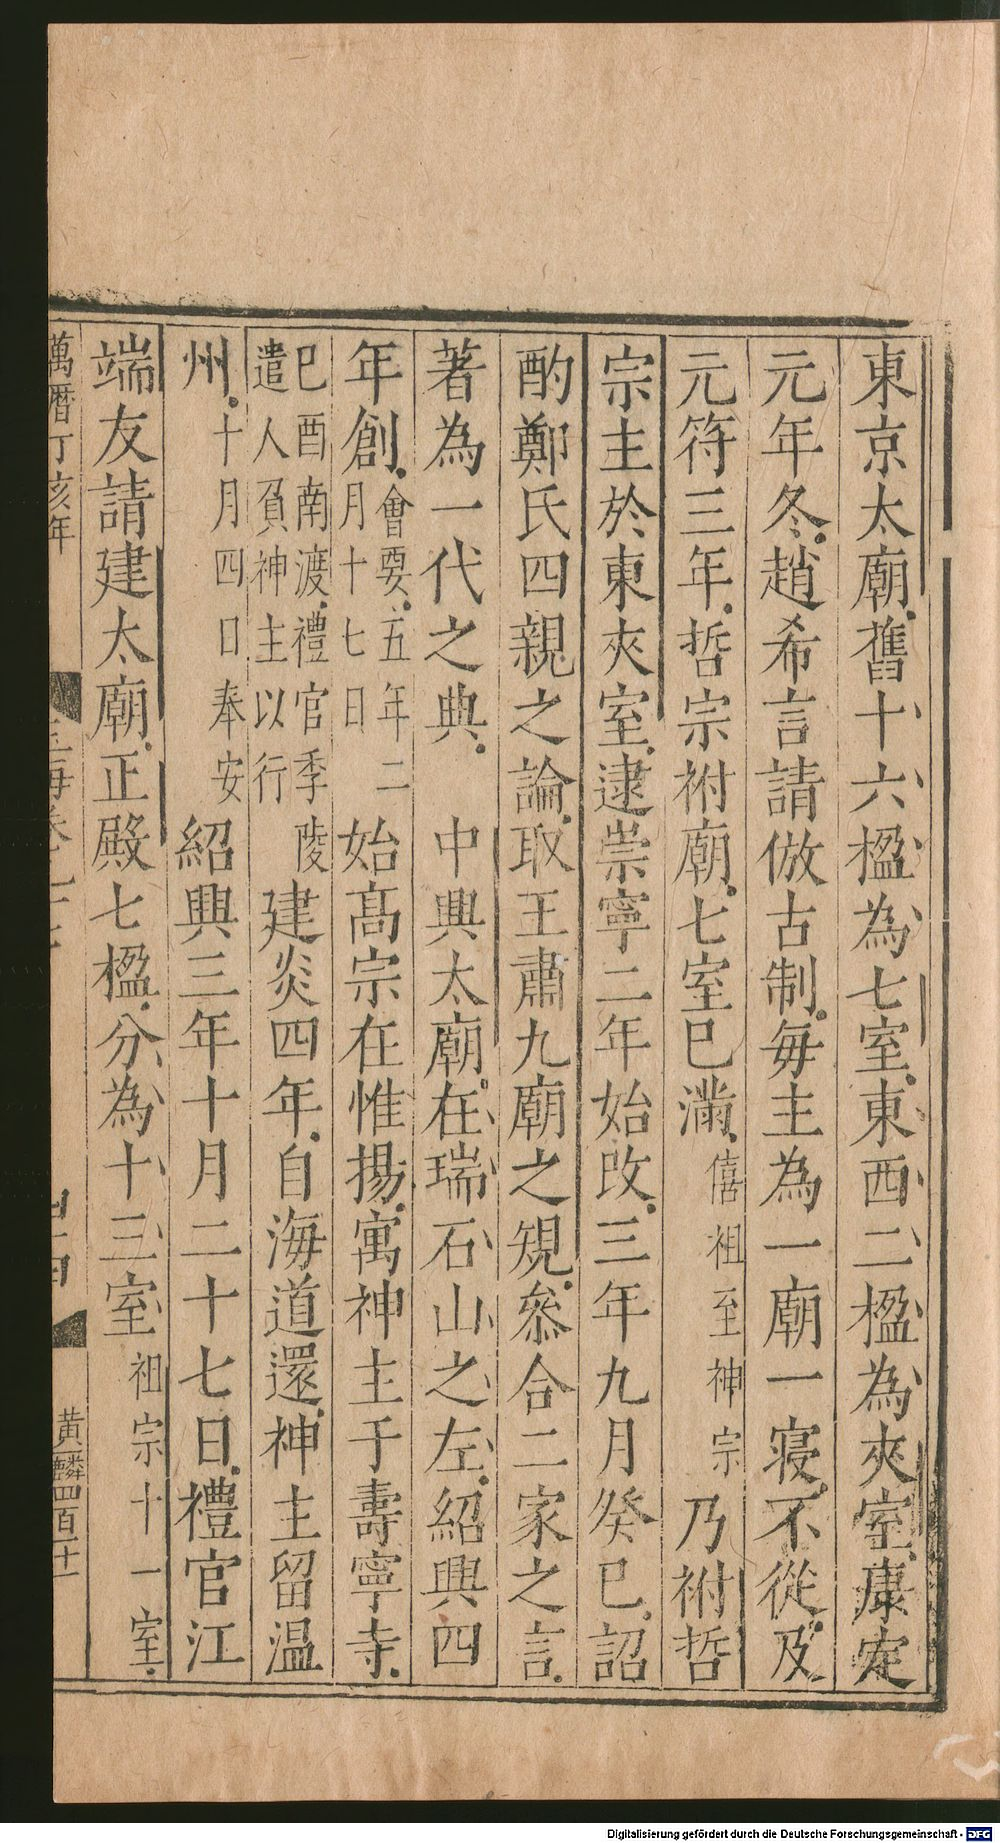 東京太廟舊十六楹為七室東西二楹為夾室康定
元年冬趙希言請倣古制每主為一廟一寢不從及
元符三年哲宗祔廟七室已滿僖祖至神宗乃祔哲
宗主於東夾室逮崇寧二年始改三年九月癸巳詔
酌鄭氏四親之論取王肅九廟之規叅合二家之言
著為一代之典　中興太廟在瑞石山之左紹興四
年創會要五年二月十七日始髙宗在惟揚寓神主于壽寧寺
巳酉南渡禮官季陵遣人負神主以行建炎四年自海道還神主留温
州十月四日奉安紹興三年十月二十七日禮官江
端友請建太廟正殿七楹分為十三室祖宗十一室
萬曆丁亥年
黄麟四百二十
Digitalisierung gefördert durch die Deutsche Forschungsgemeinschaft - DFG